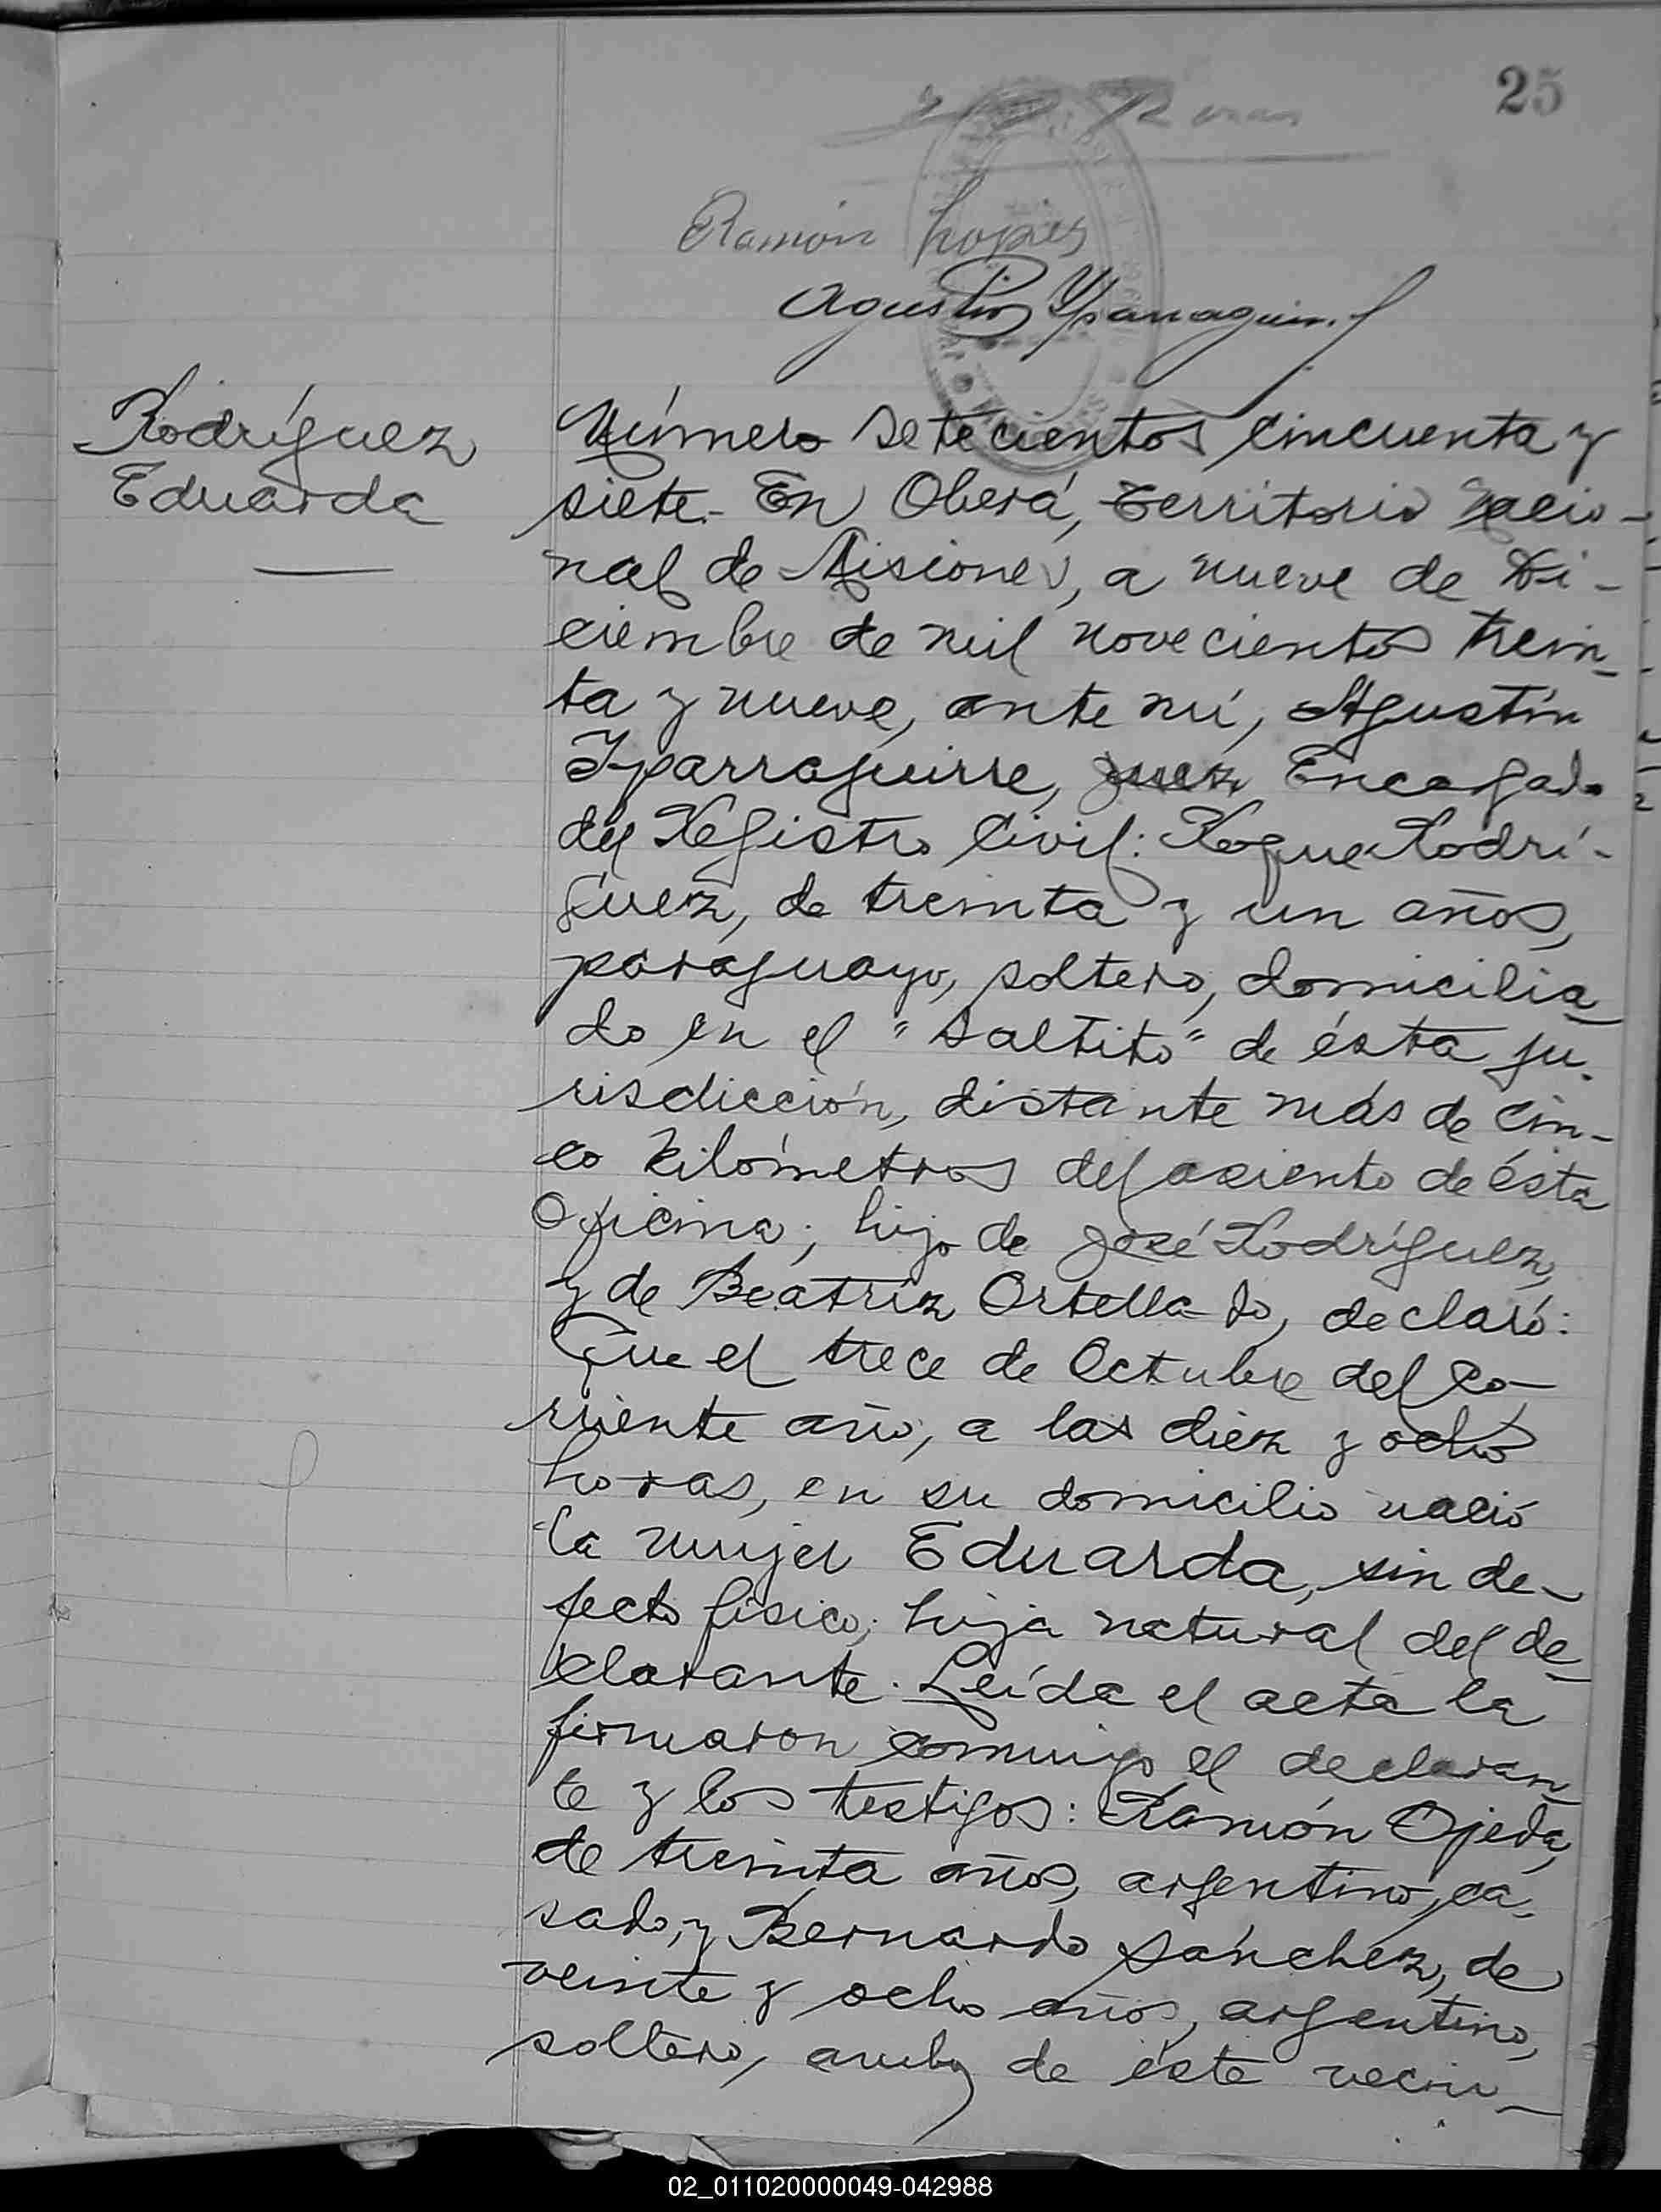 25
Ramón Lopez
Agustin Yparraguirre
Rodríguez
Eduarda
Número setecientos cincuenta y
siete.- En Oberá, Territorio Nacio-
nal de Misiones, a nueve de Di-
ciembre de mil novecientos trein-
ta y nueve, ante mí, Agustín
Yparraguirre, Juez Encargado
del Registro Civil: Roque Rodrí-
guez, de treinta y un años,
paraguayo, soltero, domicilia-
do en el "Saltito" de ésta ju-
risdicción, distante más de cin-
co kilómetros del asiento de ésta
Oficina; hijo de José Rodríguez,
y de Beatríz Ortellado, declaró:
Que el trece de Octubre del co-
rriente año, a las diez y ocho
horas, en su domicilio nació
la mujer Eduarda, sin de-
fecto físico; hija natural del de-
clarante. Leída el acta la
firmaron conmigo el declaran-
te y los testigos: Ramón Ojeda,
de treinta años, argentino, ca-
sado, y Bernardo Sánchez, de
veinte y ocho años, argentino,
soltero, ambos de éste vecin-
02_011020000049-042988